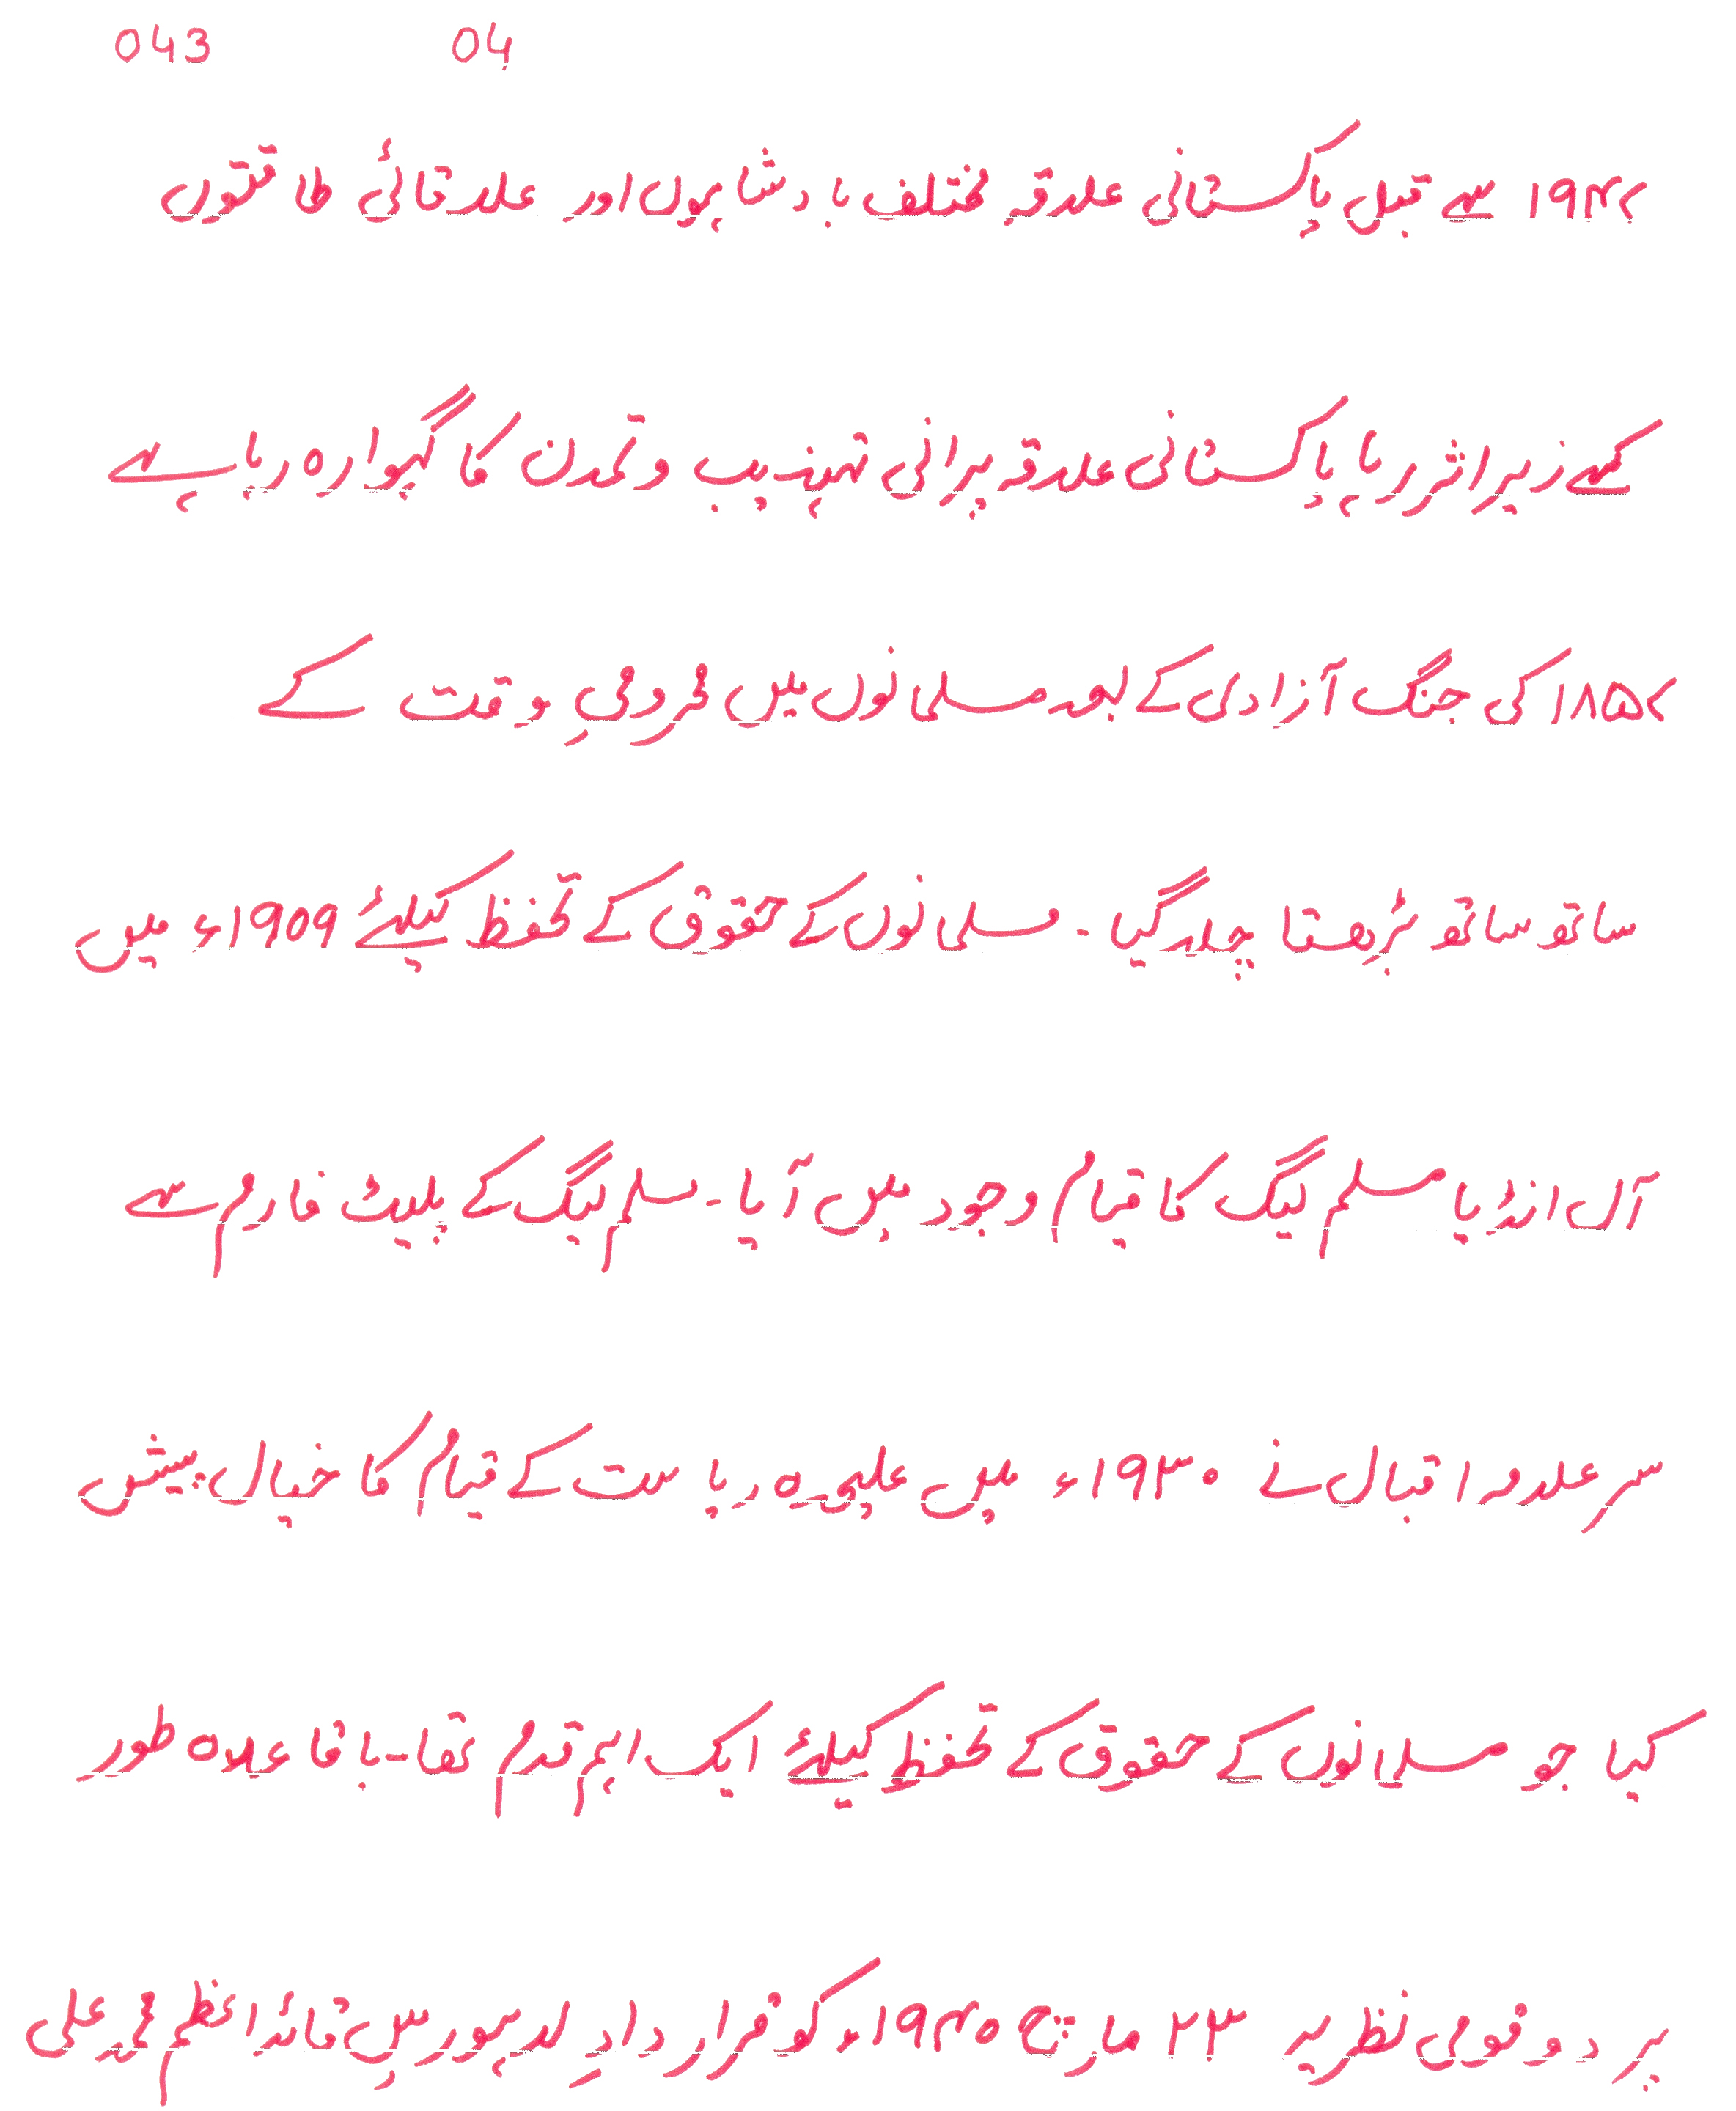 043 04
۱۹۴۷ سے قبل پاکستانی علاقہ مختلف بادشاہوں اور علاقائی طاقتوں
کے زیر اثر رہا پاکستانی علاقہ پرانی تہذیب و تمدن کا گہوارہ رہا ہے
۱۸۵۷ کی جنگ آزادی کے بعد مسلمانوں میں محرومیِ وقت کے
ساتھ ساتھ بڑھتا چلا گیا - مسلمانوں کے حقوق کے تحفظ کیلئے ۱۹۰۹ء میں
آل انڈیا مسلم لیگ کا قیام وجود میں آیا - مسلم لیگ کے پلیٹ فارم سے
سر علامہ اقبال نے ۱۹۳۰ء میں علیحدہ ریاست کے قیام کا خیال پیش
کیا جو مسلمانوں کے حقوق کے تحفظ کیلئے ایک اہم قدم تھا - باقاعدہ طور
پر دو قومی نظریہ ۲۳ مارچ ۱۹۴۰ء کو قرار دادِ لاہور میں قائد اعظم محمد علی